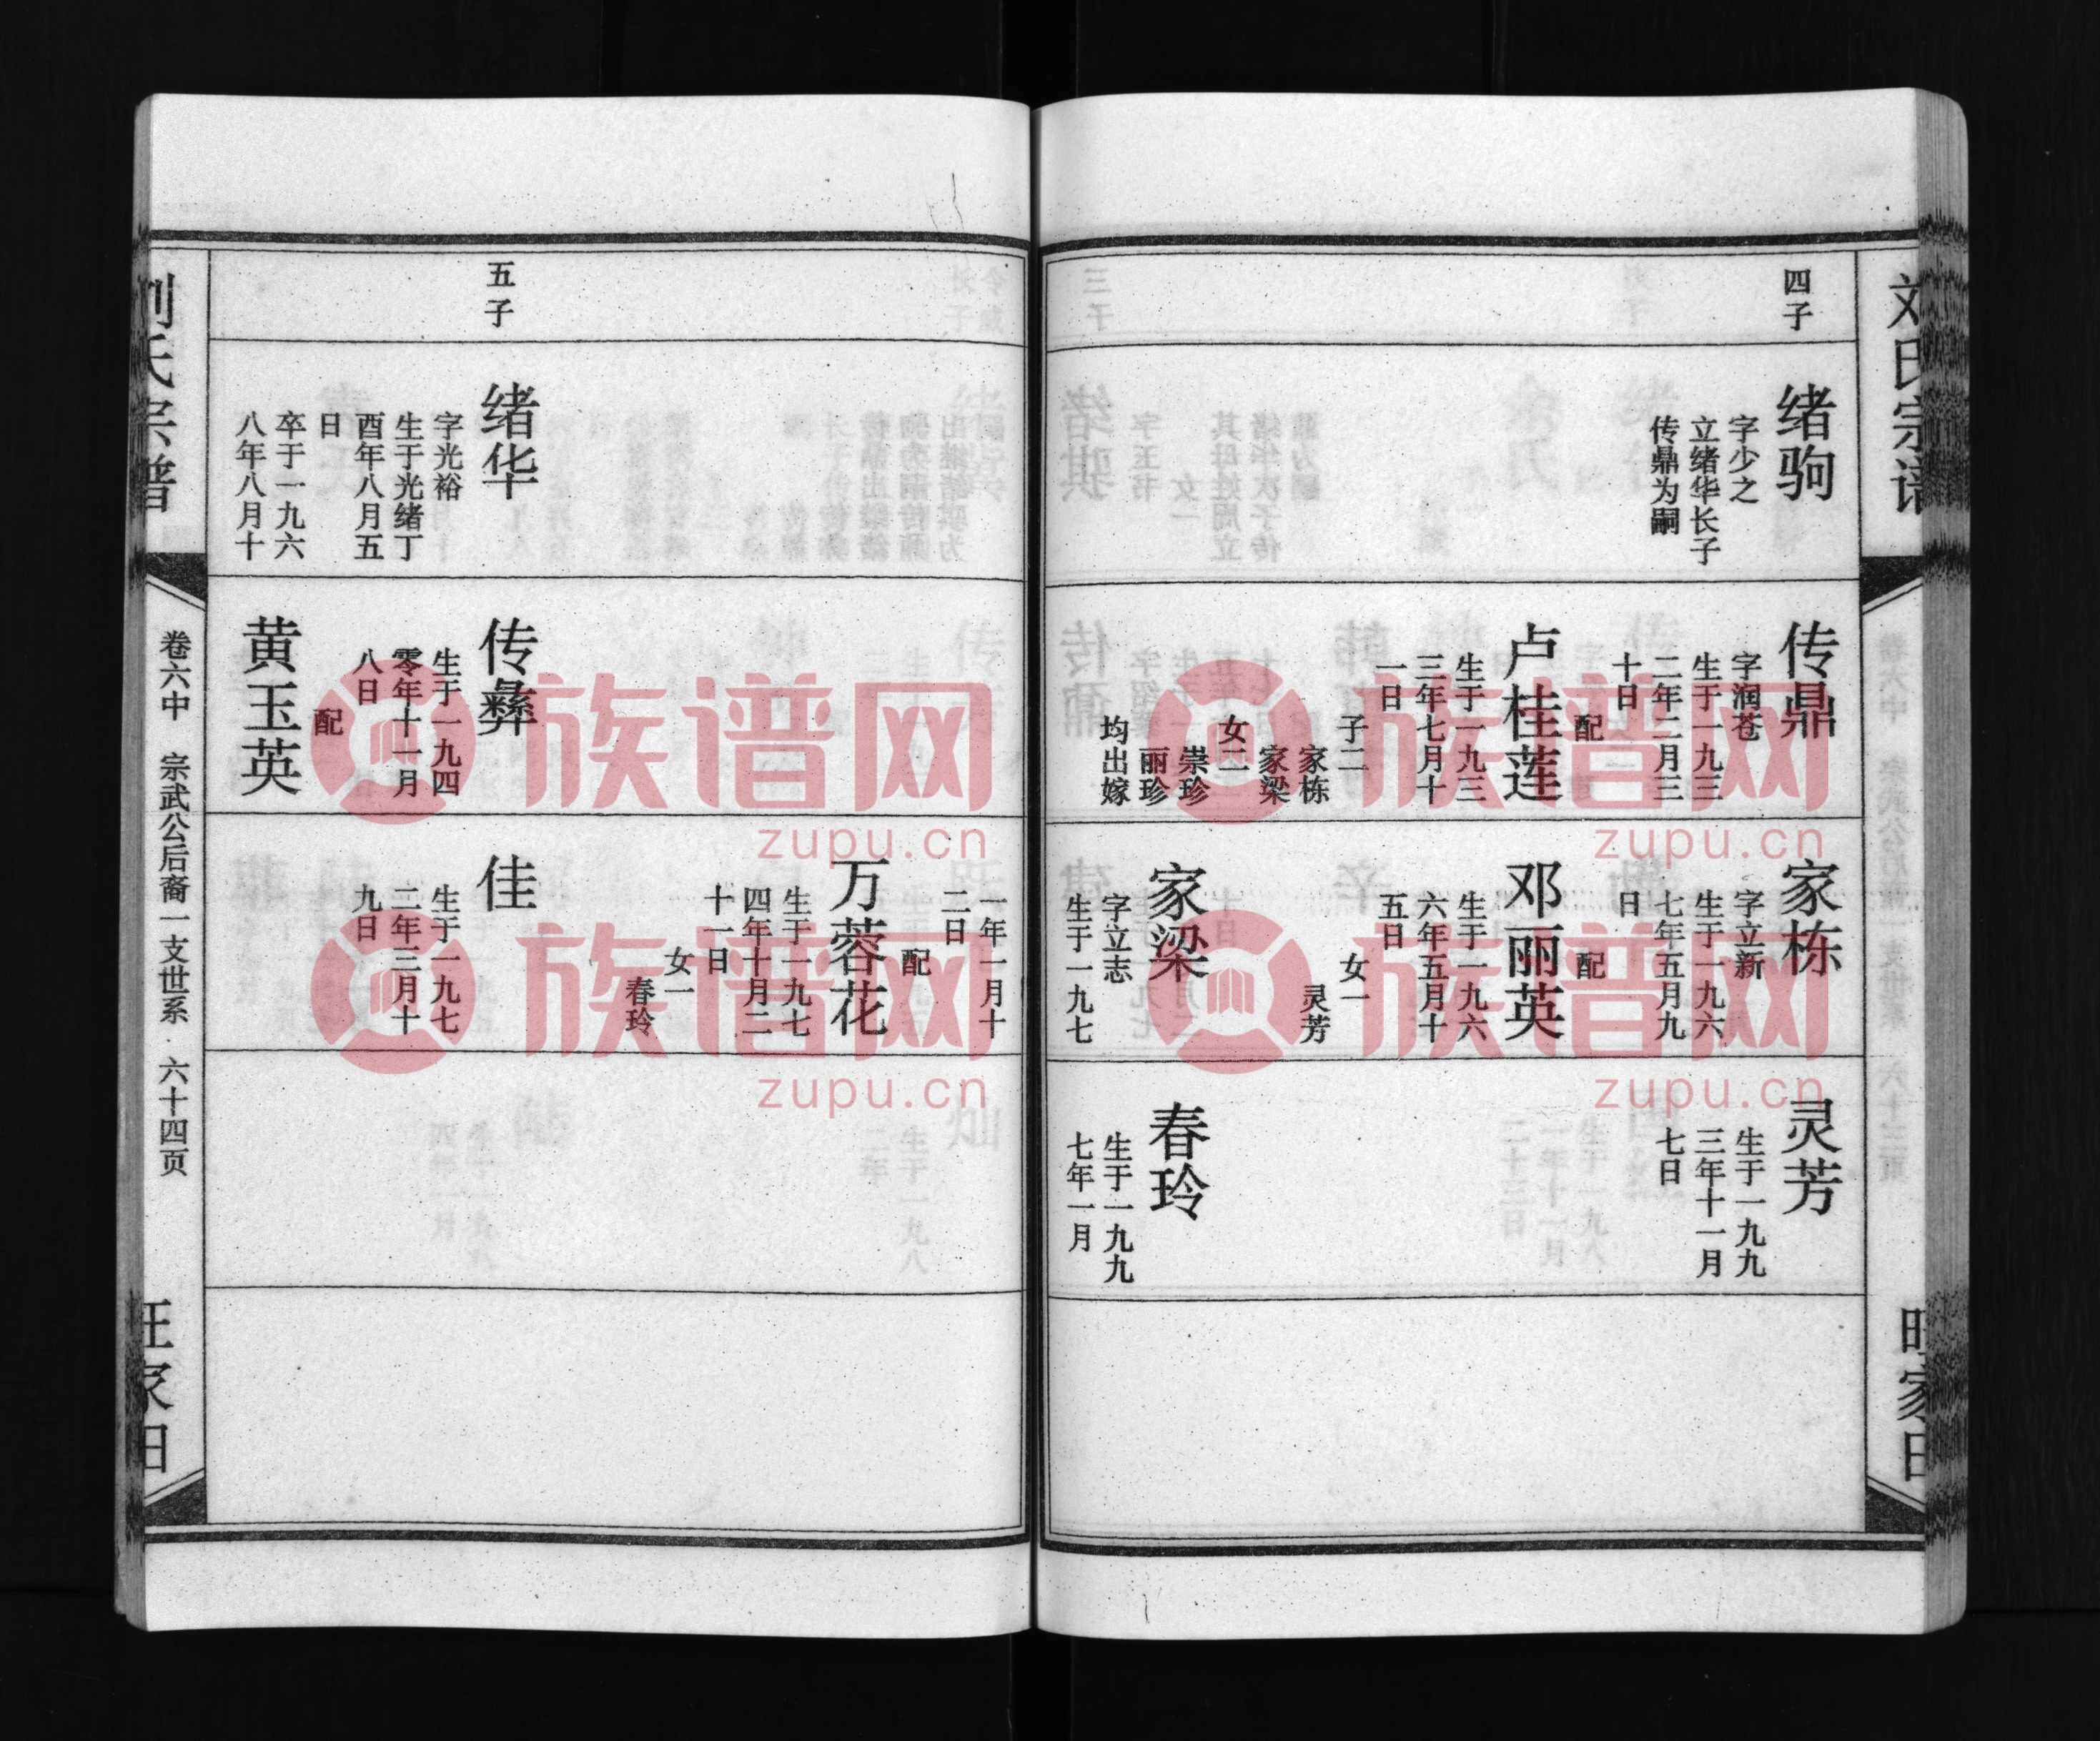 刘氏宗谱
旺家田
四子
绪驹
字少之
立绪华长子
传鼎为嗣
传鼎
字润苍
生于一九三
二年二月三
十日
配
卢桂莲
生于一九三
三年七月十
一日
子二
家栋
家梁
女二
崇珍
丽珍
均出嫁
家栋
字立新
生于一九六
七年五月九
日
配
邓丽英
生于一九六
六年五月十
五日
女一
灵芳
家梁
字立志
生于一九七
灵芳
生于一九九
三年十一月
七日
春玲
生于一九九
七年一月
五子
绪华
字光裕
生于光绪丁
酉年八月五
日
卒于一九六
八年八月十
传彝
生于一九四
零年十一月
八日
配
黄玉英
一年一月十
二日
配
万蓉花
生于一九七
四年十月二
十一日
女一
春玲
佳
生于一九七
二年三月十
九日
刘氏宗谱
卷六中 宗武公后裔一支世系·六十四页
旺家田
族谱网
zupu.cn
族谱网
zupu.cn
族谱网
zupu.cn
族谱网
zupu.cn